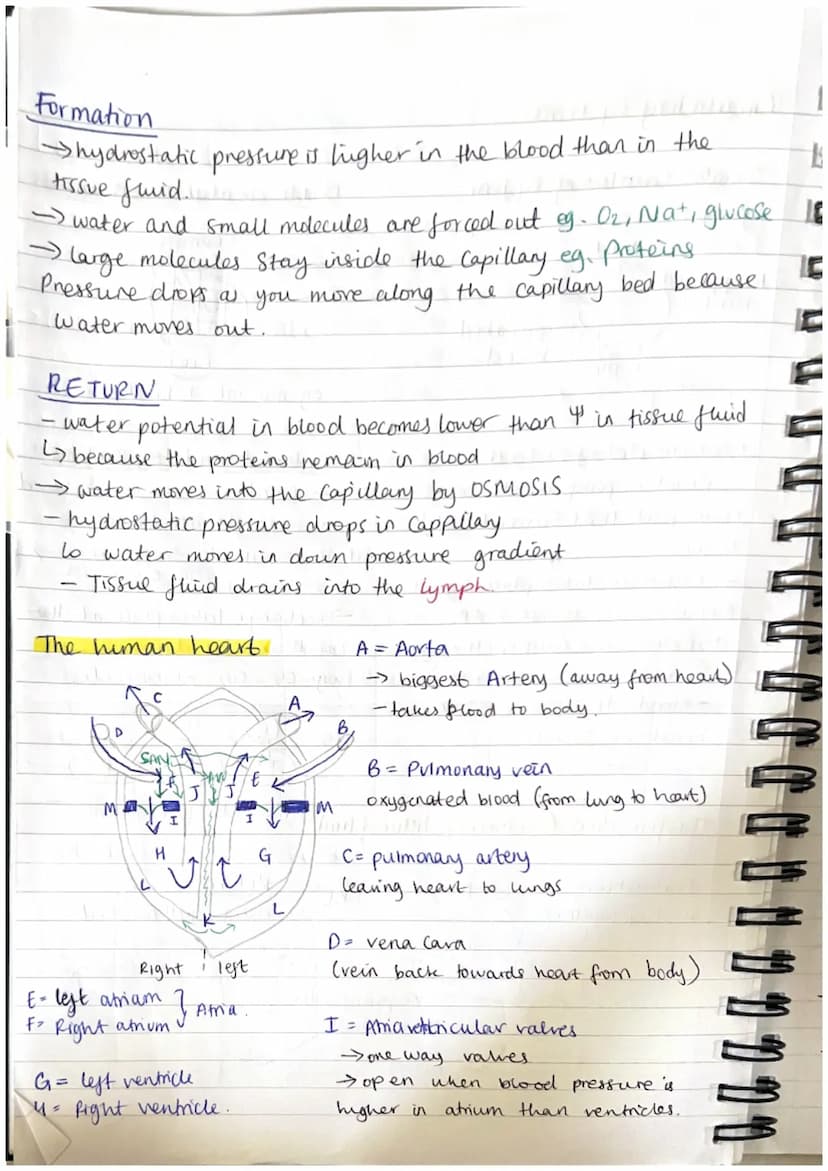 Formation
→ hydrostatic pressure is higher in the blood than in the
tissue fluid.
→ water and small molecules are forced out eg. O2, Na+, glucose
→ large molecules stay inside the capillary eg. Proteins
Pressure drops as you move along the capillary bed because
water moves out.
RETURN
- water potential in blood becomes lower than Ψ in tissue fluid
↳ because the proteins remain in blood
→ water moves into the capillary by OSMOSIS
- hydrostatic pressure drops in cappillary
↳ water moves in down pressure gradient
- Tissue fluid drains into the lymph.
The human heart
A = Aorta
→ biggest Artery (away from heart)
- takes blood to body.
B = Pulmonary vein
oxygenated blood (from lung to heart)
C = pulmonary artery
leaving heart to lungs
D = vena cava
(vein back towards heart from body)
C
A
D
B
SAN
F
J
J
E
M
I
I
M
H
G
L
L
K
Right left
E = left atrium
F = Right atrium } Atria.
G = left ventricle
H = Right ventricle.
I = Atrioventricular valves
→ one way valves
→ open when blood pressure is
higher in atrium than ventricles.